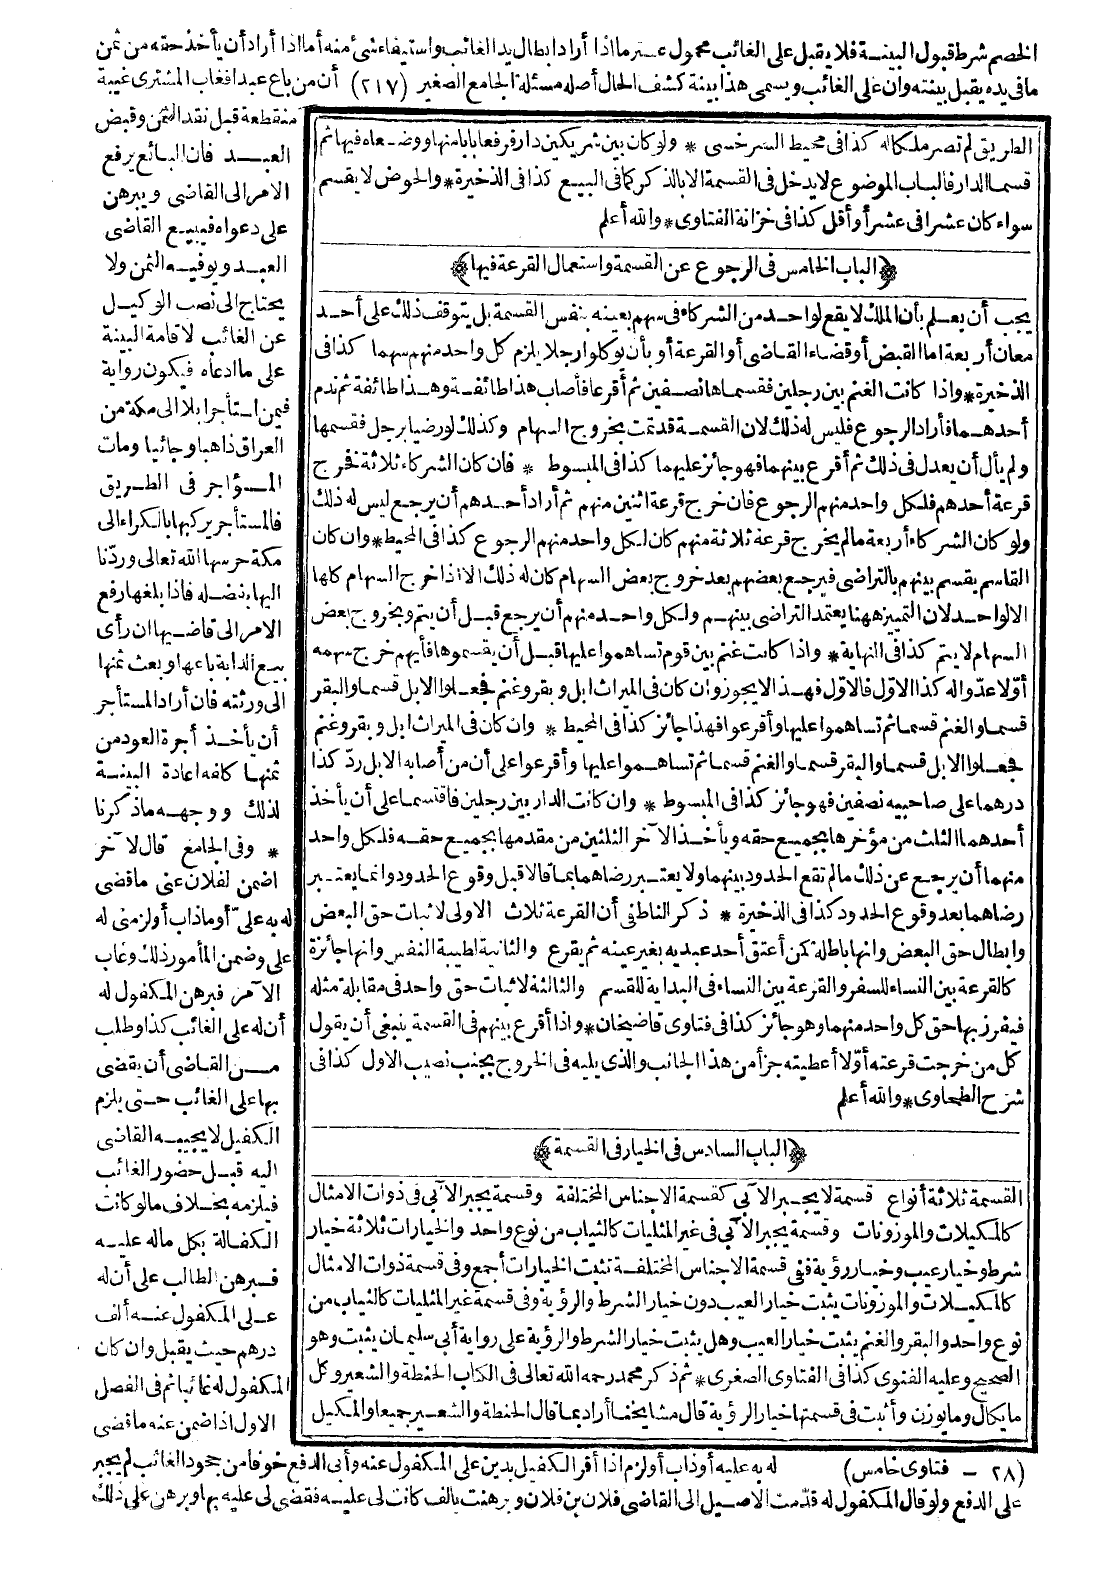 الخصم شرط قبول البينة فلا يقبل على الغائب محمول عتر ما اذا أراد ابطال يد الغائب واستيفاء شئ منه أما اذا أراد أن يأخذ حقه من ثمن
ما فى يده يقبل بينته وان على الغائب ويسمى هذا بينة كشف الحال أصله مسئلة الجامع الصغير (٢١٧) أن من باع عبدا فغاب المشترى غيبة
منقطعة قبل نقد الثمن وقبض
العبد فان البائع يرفع
الامر الى القاضى ويبرهن
على دعواه فيبيع القاضى
العبد ويوفيه الثمن ولا
يحتاج الى نصب الوكيل
عن الغائب لاقامة البينة
على ما ادعاه فيكون رواية
فيمن استأجر ابلا الى مكة من
العراق ذاهبا وجائيا ومات
المؤاجر فى الطريق
فالمستأجر يركبها بالكراء الى
مكة حرسها الله تعالى وردّنا
اليها بفضله فاذا بلغها رفع
الامر الى قاضيها ان رأى
بيع الدابة باعها وبعث ثمنها
الى ورثته فان أراد المستأجر
أن يأخذ أجرة العود من
ثمنها كلفه اعادة البينة
لذلك ووجهه ما ذكرنا
* وفى الجامع قال لآخر
اضمن لفلان عنى ما قضى
له به علىّ أو ما ذاب أو لزمنى له
على وضمن المأمور ذلك وغاب
الآمر فبرهن المكفول له
أن له على الغائب كذا وطلب
من القاضى أن يقضى
بها على الغائب حتى يلزم
الكفيل لا يجيبه القاضى
اليه قبل حضور الغائب
فيلزمه بخلاف ما لو كانت
الكفالة بكل ماله عليه
فبرهن الطالب على أن له
على المكفول عنه ألف
درهم حيث يقبل وان كان
المكفول له غائبا ثم فى الفصل
الاول اذا ضمن عنه ما قضى
الطريق لم تصر ملكا له كذا فى محيط السرخسى * ولو كان بين شريكين دار فرفعا بابا منها ووضعاه فيها ثم
قسما الدار فالباب الموضوع لا يدخل فى القسمة الا بالذكر كما فى البيع كذا فى الذخيرة * والحوض لا يقسم
سواء كان عشرا فى عشر أو أقل كذا فى خزانة الفتاوى * والله أعلم
﴿الباب الخامس فى الرجوع عن القسمة واستعمال القرعة فيها﴾
يجب أن يعلم بأن الملك لا يقع لواحد من الشركاء فى سهم بعينه بنفس القسمة بل يتوقف ذلك على أحد
معان أربعة اما القبض أو قضاء القاضى أو القرعة أو بأن يوكلوا رجلا يلزم كل واحد منهم سهما كذا فى
الذخيرة * واذا كانت الغنم بين رجلين فقسماها نصفين ثم أقرعا فأصاب هذا طائفة وهذا طائفة ثم ندم
أحدهما فأراد الرجوع فليس له ذلك لان القسمة قد تمت بخروج السهام وكذلك لو رضيا برجل فقسمها
ولم يأل أن يعدل فى ذلك ثم أقرع بينهما فهو جائز عليهما كذا فى المبسوط * فان كان الشركاء ثلاثة فخرج
قرعة أحدهم فلكل واحد منهم الرجوع فان خرج قرعة اثنين منهم ثم أراد أحدهم أن يرجع ليس له ذلك
ولو كان الشركاء أربعة مالم يخرج قرعة ثلاثة منهم كان لكل واحد منهم الرجوع كذا فى المحيط * وان كان
القاسم يقسم بينهم بالتراضى فيرجع بعضهم بعد خروج بعض السهام كان له ذلك الا اذا خرج السهام كلها
الا لواحد لان التمييز ههنا يعتمد التراضى بينهم ولكل واحد منهم أن يرجع قبل أن يتم وبخروج بعض
السهام لا يتم كذا فى النهاية * واذا كانت غنم بين قوم تساهموا عليها قبل أن يقسموها فأيهم خرج سهمه
أوّلا عدّوا له كذا الاوّل فالاوّل فهذا لا يجوز وان كان فى الميراث ابل وبقر وغنم فجعلوا الابل قسما والبقر
قسما والغنم قسما ثم تساهموا عليها وأقرعوا فهذا جائز كذا فى المحيط * وان كان فى الميراث ابل وبقر وغنم
فجعلوا الابل قسما والبقر قسما والغنم قسما ثم تساهموا عليها وأقرعوا على أن من أصابه الابل ردّ كذا
درهما على صاحبيه نصفين فهو جائز كذا فى المبسوط * وان كانت الدار بين رجلين فاقتسما على أن يأخذ
أحدهما الثلث من مؤخرها بجميع حقه ويأخذ الآخر الثلثين من مقدمها بجميع حقه فلكل واحد
منهما أن يرجع عن ذلك مالم تقع الحدود بينهما ولا يعتبر رضاهما بما قالا قبل وقوع الحدود وانما يعتبر
رضاهما بعد وقوع الحدود كذا فى الذخيرة * ذكر الناطفى أن القرعة ثلاث الاولى لاثبات حق البعض
وابطال حق البعض وانها باطلة كمن أعتق أحد عبديه بغير عينه ثم يقرع والثانية لطيبة النفس وانها جائزة
كالقرعة بين النساء للسفر والقرعة بين النساء فى البداية للقسم والثالثة لاثبات حق واحد فى مقابلة مثله
فيفرز بها حق كل واحد منهما وهو جائز كذا فى فتاوى قاضيخان * واذا أقرع بينهم فى القسمة ينبغى أن يقول
كل من خرجت قرعته أوّلا أعطيته جزأ من هذا الجانب والذى يليه فى الخروج بجنب نصيب الاول كذا فى
شرح الطحاوى * والله أعلم
﴿الباب السادس فى الخيار فى القسمة﴾
القسمة ثلاثة أنواع قسمة لا يجبر الآبى كقسمة الاجناس المختلفة وقسمة يجبر الآبى فى ذوات الامثال
كالمكيلات والموزونات وقسمة يجبر الآبى فى غير المثليات كالثياب من نوع واحد والخيارات ثلاثة خيار
شرط وخيار عيب وخيار رؤية ففى قسمة الاجناس المختلفة تثبت الخيارات أجمع وفى قسمة ذوات الامثال
كالمكيلات والموزونات يثبت خيار العيب دون خيار الشرط والرؤية وفى قسمة غير المثليات كالثياب من
نوع واحد والبقر والغنم يثبت خيار العيب وهل يثبت خيار الشرط والرؤية على رواية أبى سليمان يثبت وهو
الصحيح وعليه الفتوى كذا فى الفتاوى الصغرى * ثم ذكر محمد رحمه الله تعالى فى الكتاب الحنطة والشعير وكل
ما يكال وما يوزن وأثبت فى قسمتها خيار الرؤية قال مشايخنا أراد بما قال الحنطة والشعير جميعا والمكيل
(٢٨ - فتاوى خامس) له به عليه أو ذاب أو لزم اذا أقر الكفيل بدين على المكفول عنه وأبى الدفع خوفا من جحود الغائب لم يجبر
على الدفع ولو قال المكفول له قدّمت الاصيل الى القاضى فلان بن فلان وبرهنت بألف كانت لى عليه فقضى لى عليه بها وبرهن على ذلك